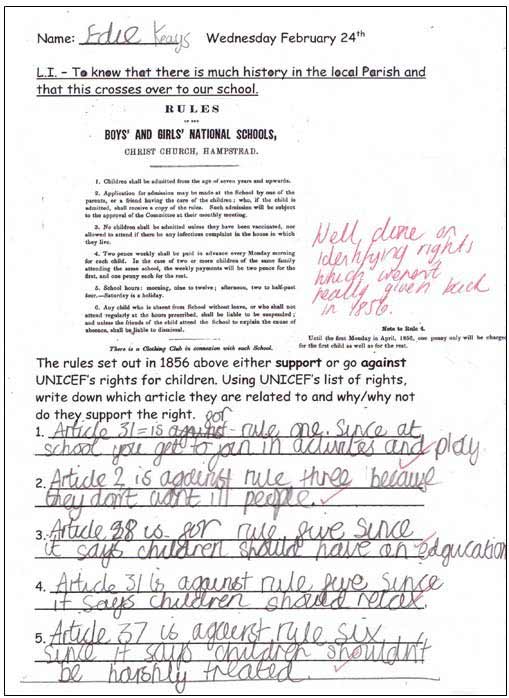 Name: Edie Keays Wednesday February 24th
L.I. – To know that there is much history in the local Parish and
that this crosses over to our school.
RULES
OF THE
BOYS' AND GIRLS' NATIONAL SCHOOLS,
CHRIST CHURCH, HAMPSTEAD.
1. Children shall be admitted from the age of seven years and upwards.
2. Application for admission may be made at the School by one of the
parents, or a friend having the care of the children; who, if the child is
admitted, shall receive a copy of the rules. Such admission will be subject
to the approval of the Committee at their monthly meeting.
3. No children shall be admitted unless they have been vaccinated, nor
allowed to attend if there be any infectious complaint in the house in which
they live.
4. Two pence weekly shall be paid in advance every Monday morning
for each child. In the case of two or more children of the same family
attending the same school, the weekly payments will be two pence for the
first, and one penny each for the rest.
5. School hours: morning, nine to twelve; afternoon, two to half-past
four.—Saturday is a holiday.
6. Any child who is absent from School without leave, or who shall not
attend regularly at the hours prescribed, shall be liable to be suspended;
and unless the friends of the child attend the School to explain the cause of
absence, shall be liable to dismissal.
There is a Clothing Club in connexion with each School.
Well done on
identifying rights
which weren't
really given back
in 1856.
Note to Rule 4.
Until the first Monday in April, 1856, one penny only will be charged
for the first child as well as for the rest.
The rules set out in 1856 above either support or go against
UNICEF's rights for children. Using UNICEF's list of rights,
write down which article they are related to and why/why not
do they support the right.
1. Article 31 = is against for rule one. Since at
school you get to join in activites and play
2. Article 2 is against rule three because
they don't want ill people.
3. Article 28 is for rule five since
it says children should have an edgucation
4. Article 31 is against rule five since
it says children should relax.
5. Article 37 is against rule six,
since it says children shouldn't
be harshly treated.